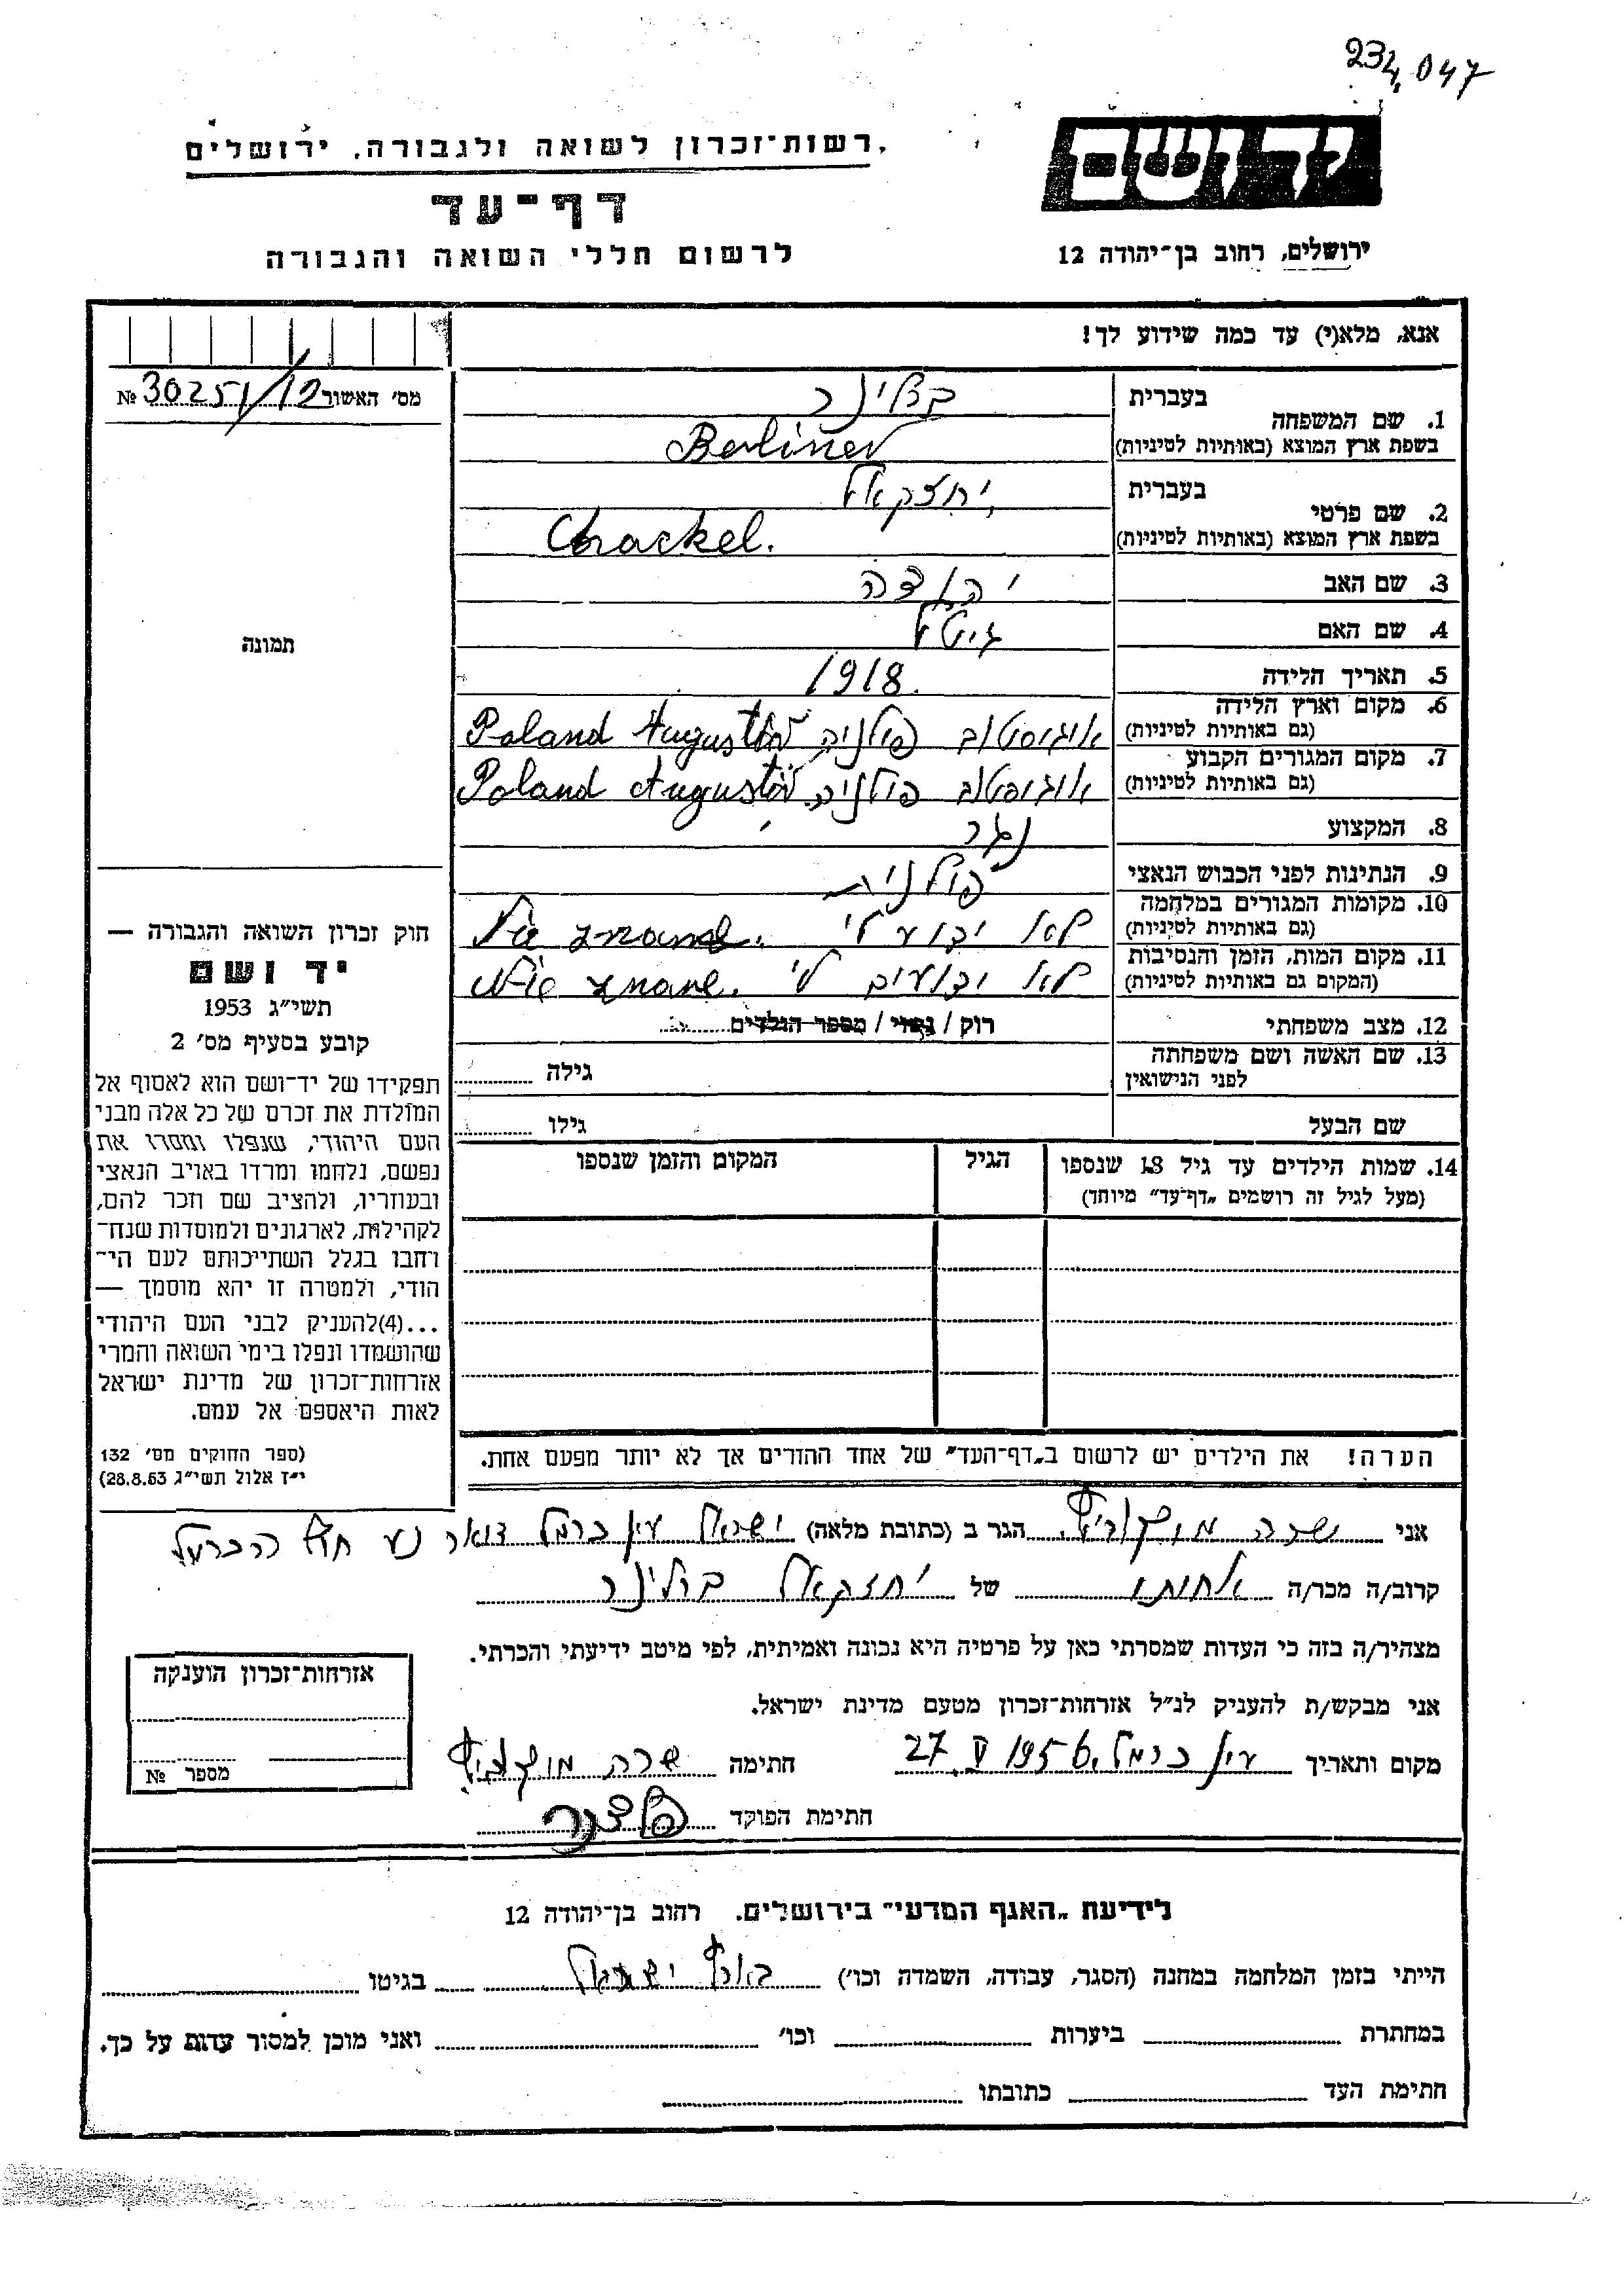 234,047
יד ושם
ירושלים, רחוב בן־יהודה 12
רשות־זכרון לשואה ולגבורה, ירושלים
דף־עד
לרשום חללי השואה והגבורה
אנא, מלא(י) עד כמה שידוע לך!
מס׳ האשור 30251/12 №
תמונה
1. שם המשפחה
בעברית
ברלינר
בשפת ארץ המוצא (באותיות לטיניות) Berliner
2. שם פרטי
בעברית
יחזקאל
בשפת ארץ המוצא (באותיות לטיניות) Chackel.
3. שם האב יהודה
4. שם האם גיטל
5. תאריך הלידה 1918.
6. מקום וארץ הלידה
(גם באותיות לטיניות) אוגוסטוב פולניה Poland Augustöv
7. מקום המגורים הקבוע
(גם באותיות לטיניות) אוגוסטוב פולניה. Poland Augustöv
8. המקצוע נגר
9. הנתינות לפני הכבוש הנאצי פולנית
10. מקומות המגורים במלחמה
(גם באותיות לטיניות) לא ידוע לי. Nie znane
11. מקום המות, הזמן והנסיבות
(המקום גם באותיות לטיניות) לא ידועים לי. Nie znane
12. מצב משפחתי רוק / נשוי / מספר הילדים
13. שם האשה ושם משפחתה
לפני הנישואין
גילה
שם הבעל גילו
14. שמות הילדים עד גיל 18 שנספו
(מעל לגיל זה רושמים „דף־עד” מיוחד)
הגיל
המקום והזמן שנספו
הערה! את הילדים יש לרשום ב„דף־העד” של אחד ההורים אך לא יותר מפעם אחת.
חוק זכרון השואה והגבורה —
יד ושם
תשי״ג 1953
קובע בסעיף מס׳ 2
תפקידו של יד־ושם הוא לאסוף אל
המולדת את זכרם של כל אלה מבני
העם היהודי, שנפלו ומסרו את
נפשם, נלחמו ומרדו באויב הנאצי
ובעוזריו, ולהציב שם וזכר להם,
לקהילות, לארגונים ולמוסדות שנח־
רחבו בגלל השתייכותם לעם הי־
הודי, ולמטרה זו יהא מוסמך —
...(4)להעניק לבני העם היהודי
שהושמדו ונפלו בימי השואה והמרי
אזרחות־זכרון של מדינת ישראל
לאות היאספם אל עמם.
(ספר החוקים מס׳ 132
י״ז אלול תשי״ג 28.8.53)
אני שרה הגר ב (כתובת מלאה) ישראל עין כרמל דואר נע חוף הכרמל
קרוב/ה מכר/ה אחותו של יחזקאל ברלינר
מצהיר/ה בזה כי העדות שמסרתי כאן על פרטיה היא נכונה ואמיתית, לפי מיטב ידיעתי והכרתי.
אני מבקש/ת להעניק לנ״ל אזרחות־זכרון מטעם מדינת ישראל.
מקום ותאריך עין כרמל, 27.V 1956 חתימה שרה
חתימת הפוקד
אזרחות־זכרון הוענקה
מספר №
לידיעת „האגף המדעי” בירושלים. רחוב בן־יהודה 12
הייתי בזמן המלחמה במחנה (הסגר, עבודה, השמדה וכו׳) בארץ ישראל בגיטו
במחתרת ביערות וכו׳ ואני מוכן למסור עדות על כך.
חתימת העד כתובתו